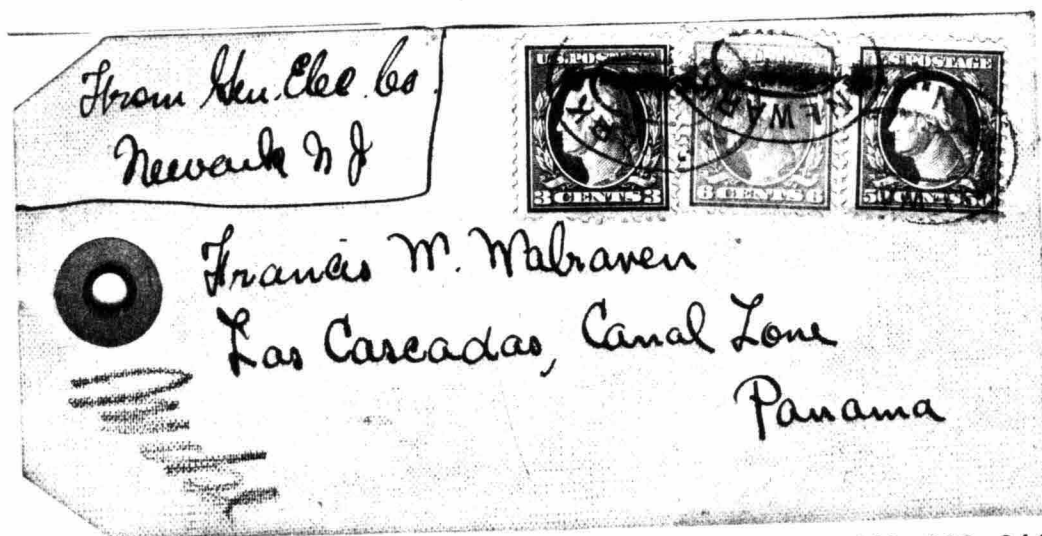 From Gen. Elec. Co.
Newark N J
U.S. POSTAGE
3 CENTS 3
6 CENTS 6
U.S. POSTAGE
50 CENTS 50
NEWARK
Francis W. Walraven
Las Cascadas, Canal Zone
Panama